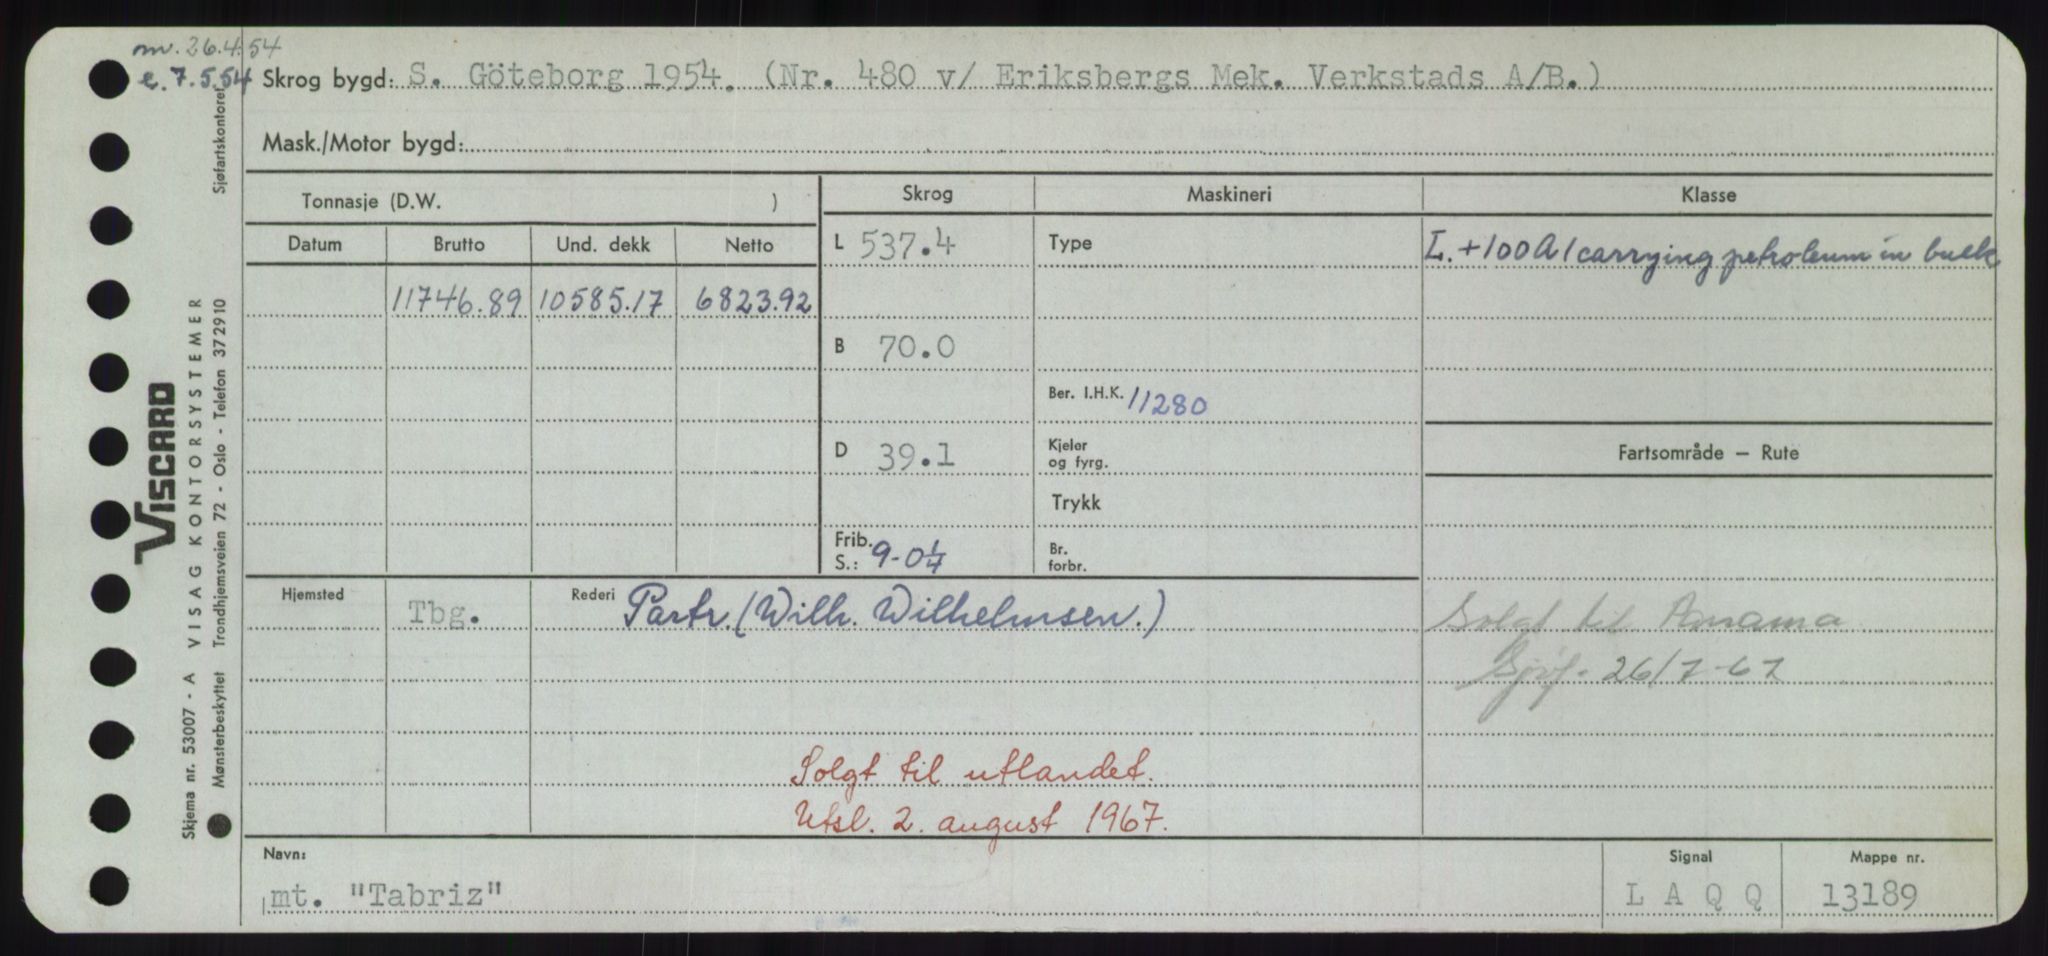 m. 26.4.54
e. 7.5.54
Skrog bygd: S. Göteborg 1954. (Nr. 480 v/ Eriksbergs Mek. Verkstads A/B.)
Mask./Motor bygd:
Tonnasje (D.W. )
Skrog
Maskineri
Klasse
Datum
Brutto
Und. dekk
Netto
L 537.4
Type
L. +100A1 carrying petroleum in bulk
11746.89
10585.17
6823.92
B 70.0
Ber. I.H.K. 11280
D 39.1
Kjeler
og fyrg.
Fartsområde – Rute
Trykk
Frib.
S.: 9-0¼
Br.
forbr.
Hjemsted
Tbg.
Rederi Partr. (Wilh. Wilhelmsen.)
Solgt til Panama
Sjøf. 26/7-67
Solgt til utlandet.
Utsl. 2. august 1967.
Navn:
mt. "Tabriz"
Signal
L A Q Q
Mappe nr.
13189
VISCARD
Skjema nr. 53007 - A VISAG KONTORSYSTEMER
Mønsterbeskyttet Trondhjemsveien 72 - Oslo - Telefon 372910
Sjøfartskontoret